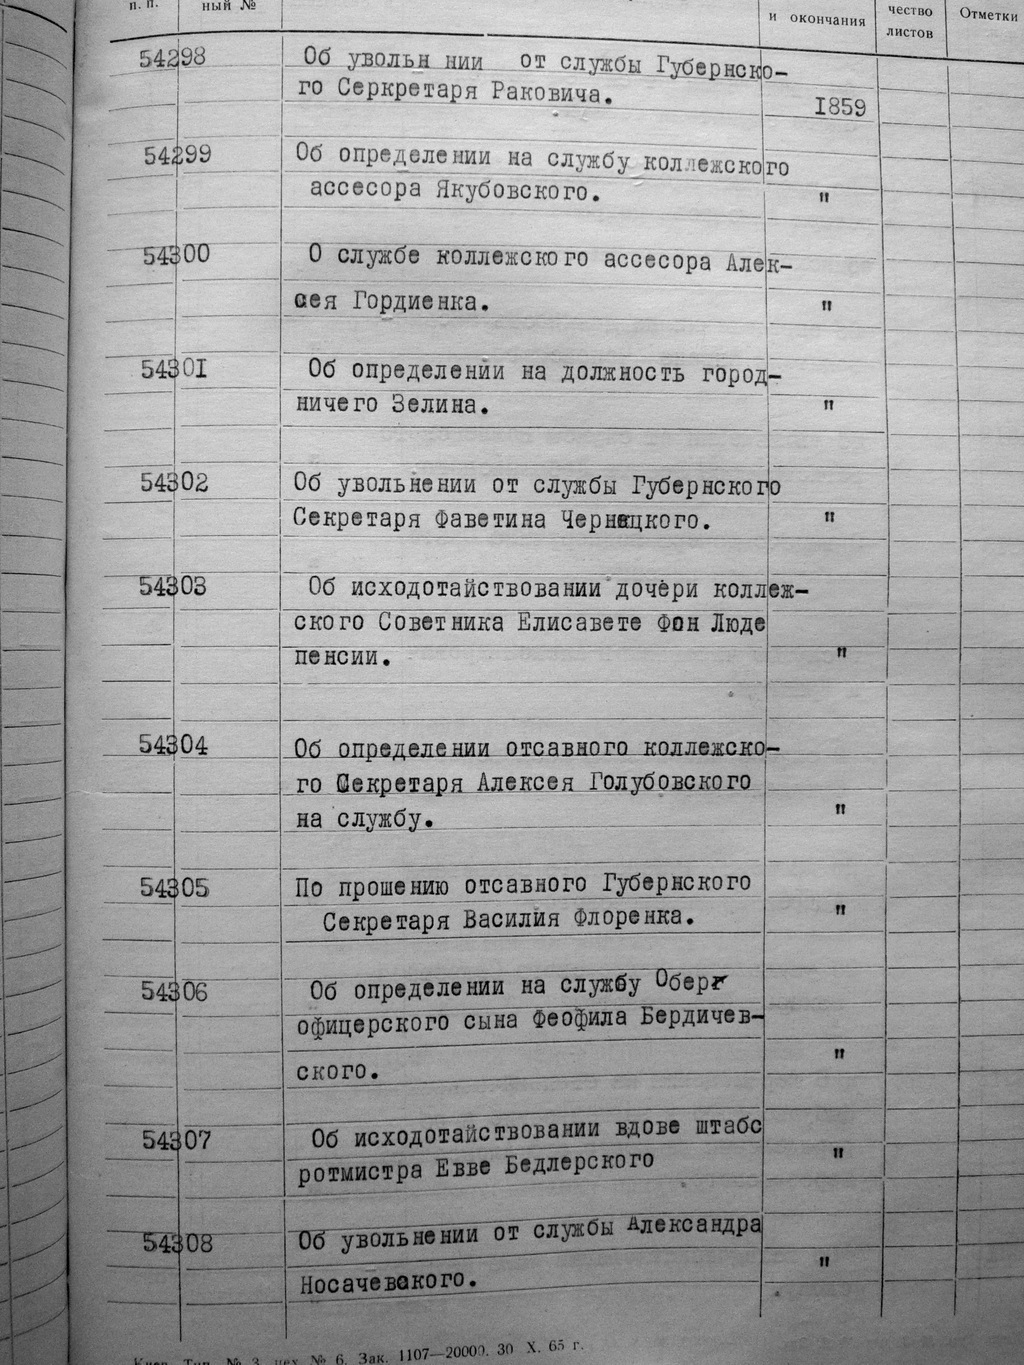 п. п. ный № и окончания чество листов Отметки
54298 Об увольн нии от службы Губернско-
го Серкретаря Раковича. 1859
54299 Об определении на службу коллежского
ассесора Якубовского. "
54300 О службе коллежского ассесора Алек-
сея Гордиенка. "
54301 Об определении на должность город-
ничего Зелина. "
54302 Об увольнении от службы Губернского
Секретаря Фаветина Чернацкого. "
54303 Об исходотайствовании дочери коллеж-
ского Советника Елисавете Фон Люде
пенсии. "
54304 Об определении отсавного коллежско-
го Секретаря Алексея Голубовского
на службу. "
54305 По прошению отсавного Губернского
Секретаря Василия Флоренка. "
54306 Об определении на службу Обер
офицерского сына Феофила Бердичев-
ского. "
54307 Об исходотайствовании вдове штабс
ротмистра Евве Бедлерского "
54308 Об увольнении от службы Александра
Носачевского. "
Киев. Тип. № 3, цех № 6. Зак. 1107—20000. 30 X. 65 г.